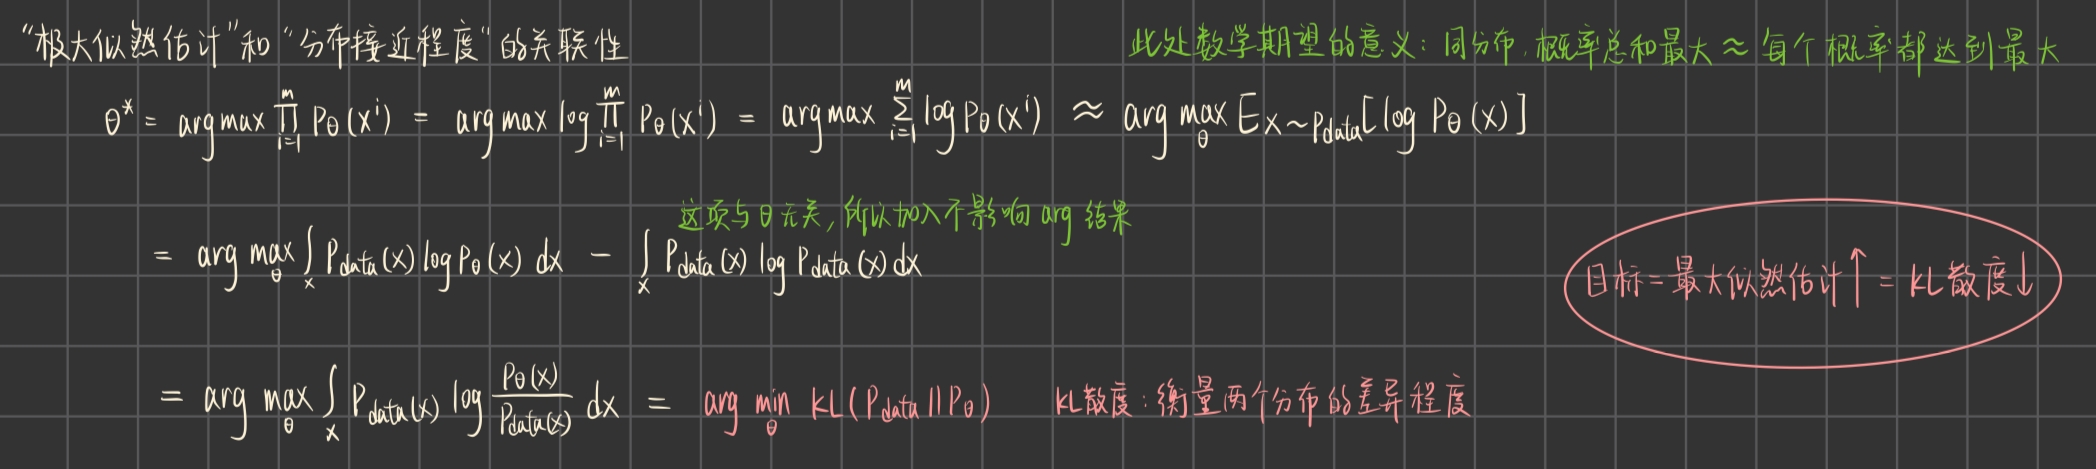 “极大似然估计”和“分布接近程度”的关联性
此处数学期望的意义：同分布，概率总和最大 ≈ 每个概率都达到最大
θ* = arg max ∏_{i=1}^{m} P_θ(x^i) = arg max log ∏_{i=1}^{m} P_θ(x^i) = arg max ∑_{i=1}^{m} log P_θ(x^i) ≈ arg max_θ E_{x~Pdata}[log P_θ(x)]
这项与θ无关，所以加入不影响 arg 结果
= arg max_θ ∫_x P_data(x) log P_θ(x) dx - ∫_x P_data(x) log P_data(x) dx
目标=最大似然估计↑ = KL散度↓
= arg max_θ ∫_x P_data(x) log \frac{P_θ(x)}{P_data(x)} dx = arg min_θ KL(P_data || P_θ) KL散度：衡量两个分布的差异程度